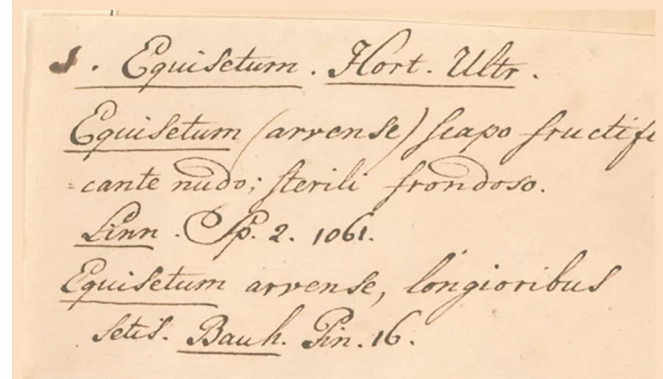 1. Equisetum. Hort. Ultr.
Equisetum (arvense) scapo fructifi
=cante nudo; sterili frondoso.
Linn. Sp. 2. 1061.
Equisetum arvense, longioribus
setis. Bauh. Pin. 16.